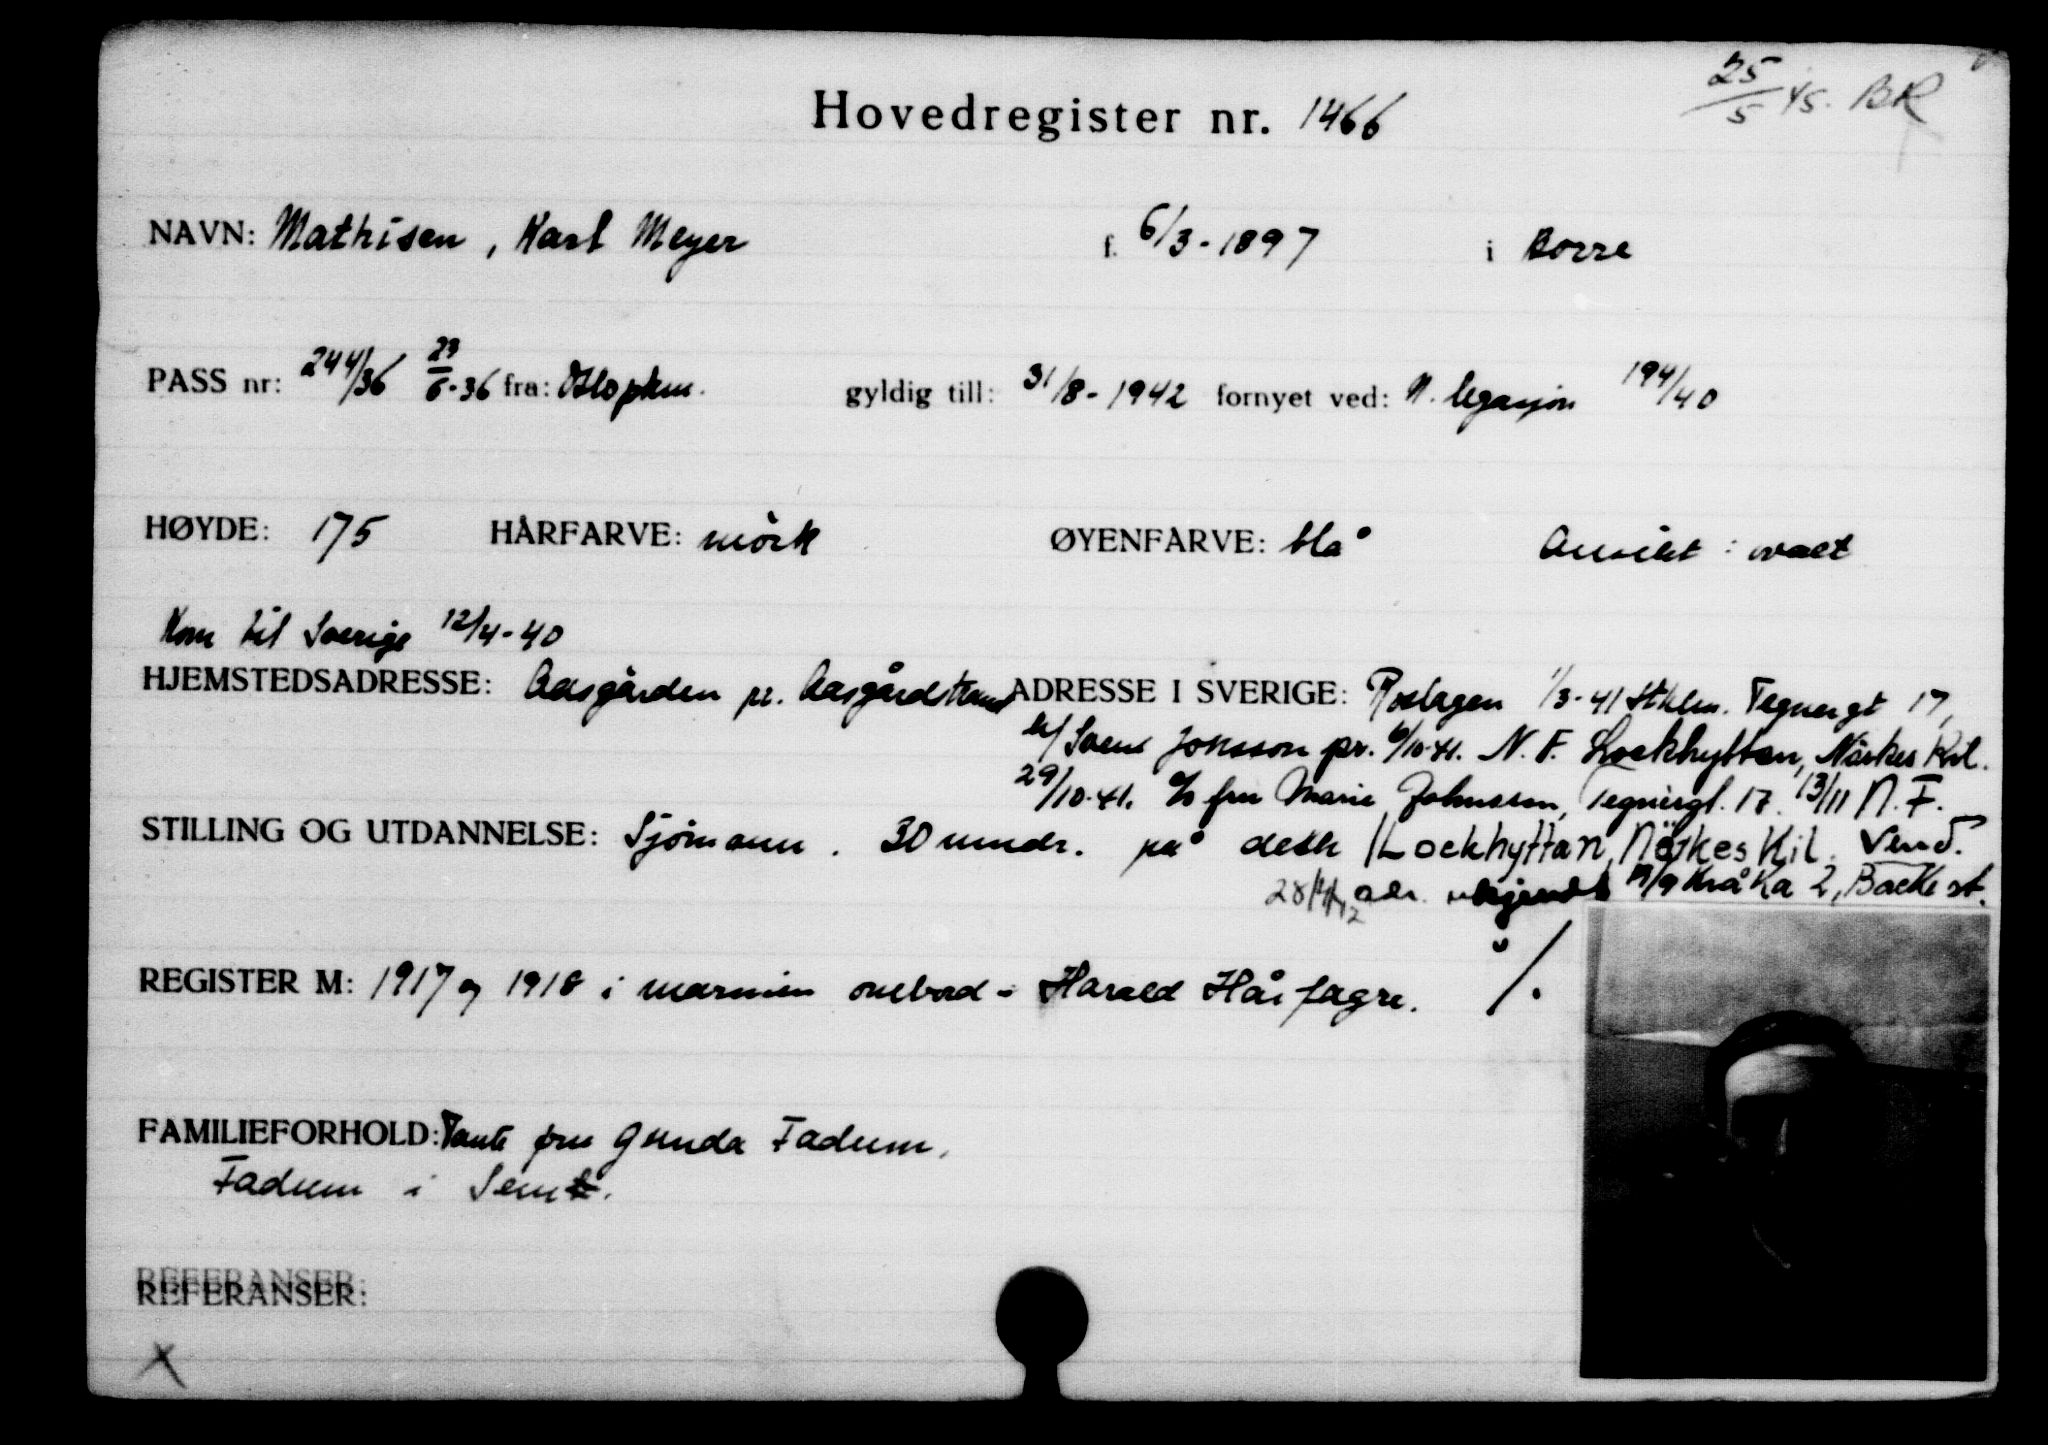 25/5 45. BR
Hovedregister nr. 1466
NAVN: Mathisen, Karl Meyer f. 6/3-1897 i Borre
PASS nr: 244/36 23/6-36 fra: Oslo pkm. gyldig till: 31/8-1942 fornyet ved: N. legasjon 194/40
HØYDE: 175 HÅRFARVE: mörk ØYENFARVE: blå Ansikt: ovalt
Kom til Sverige 12/4-40
HJEMSTEDSADRESSE: Aasgården pr. Aasgårdstrand ADRESSE I SVERIGE: Roslagen 1/3-41 Sthlm. Tegnergt 17,
Jonsson pr. 6/10-41. N.F. Lockhyttan, Närkes Kil.
29/10-41. c/o fru Marie Johnsson, Tegnérgt. 17. 13/11 N.F.
STILLING OG UTDANNELSE: Sjömann. 30 mndr. på dekk Lockhyttan, Närkes Kil.
adr. ukjendt 19/9 Kråka 2, Backe st.
REGISTER M: 1917 og 1918 i marinen ombord - Harald Hårfagre. %
FAMILIEFORHOLD: Tante fru Gunda Fadum,
Fadum i Sem.
REFERANSER:
REFERANSER:
X